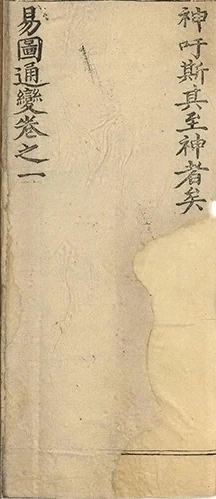 神吁斯真至神者矣
易圖通變卷之一